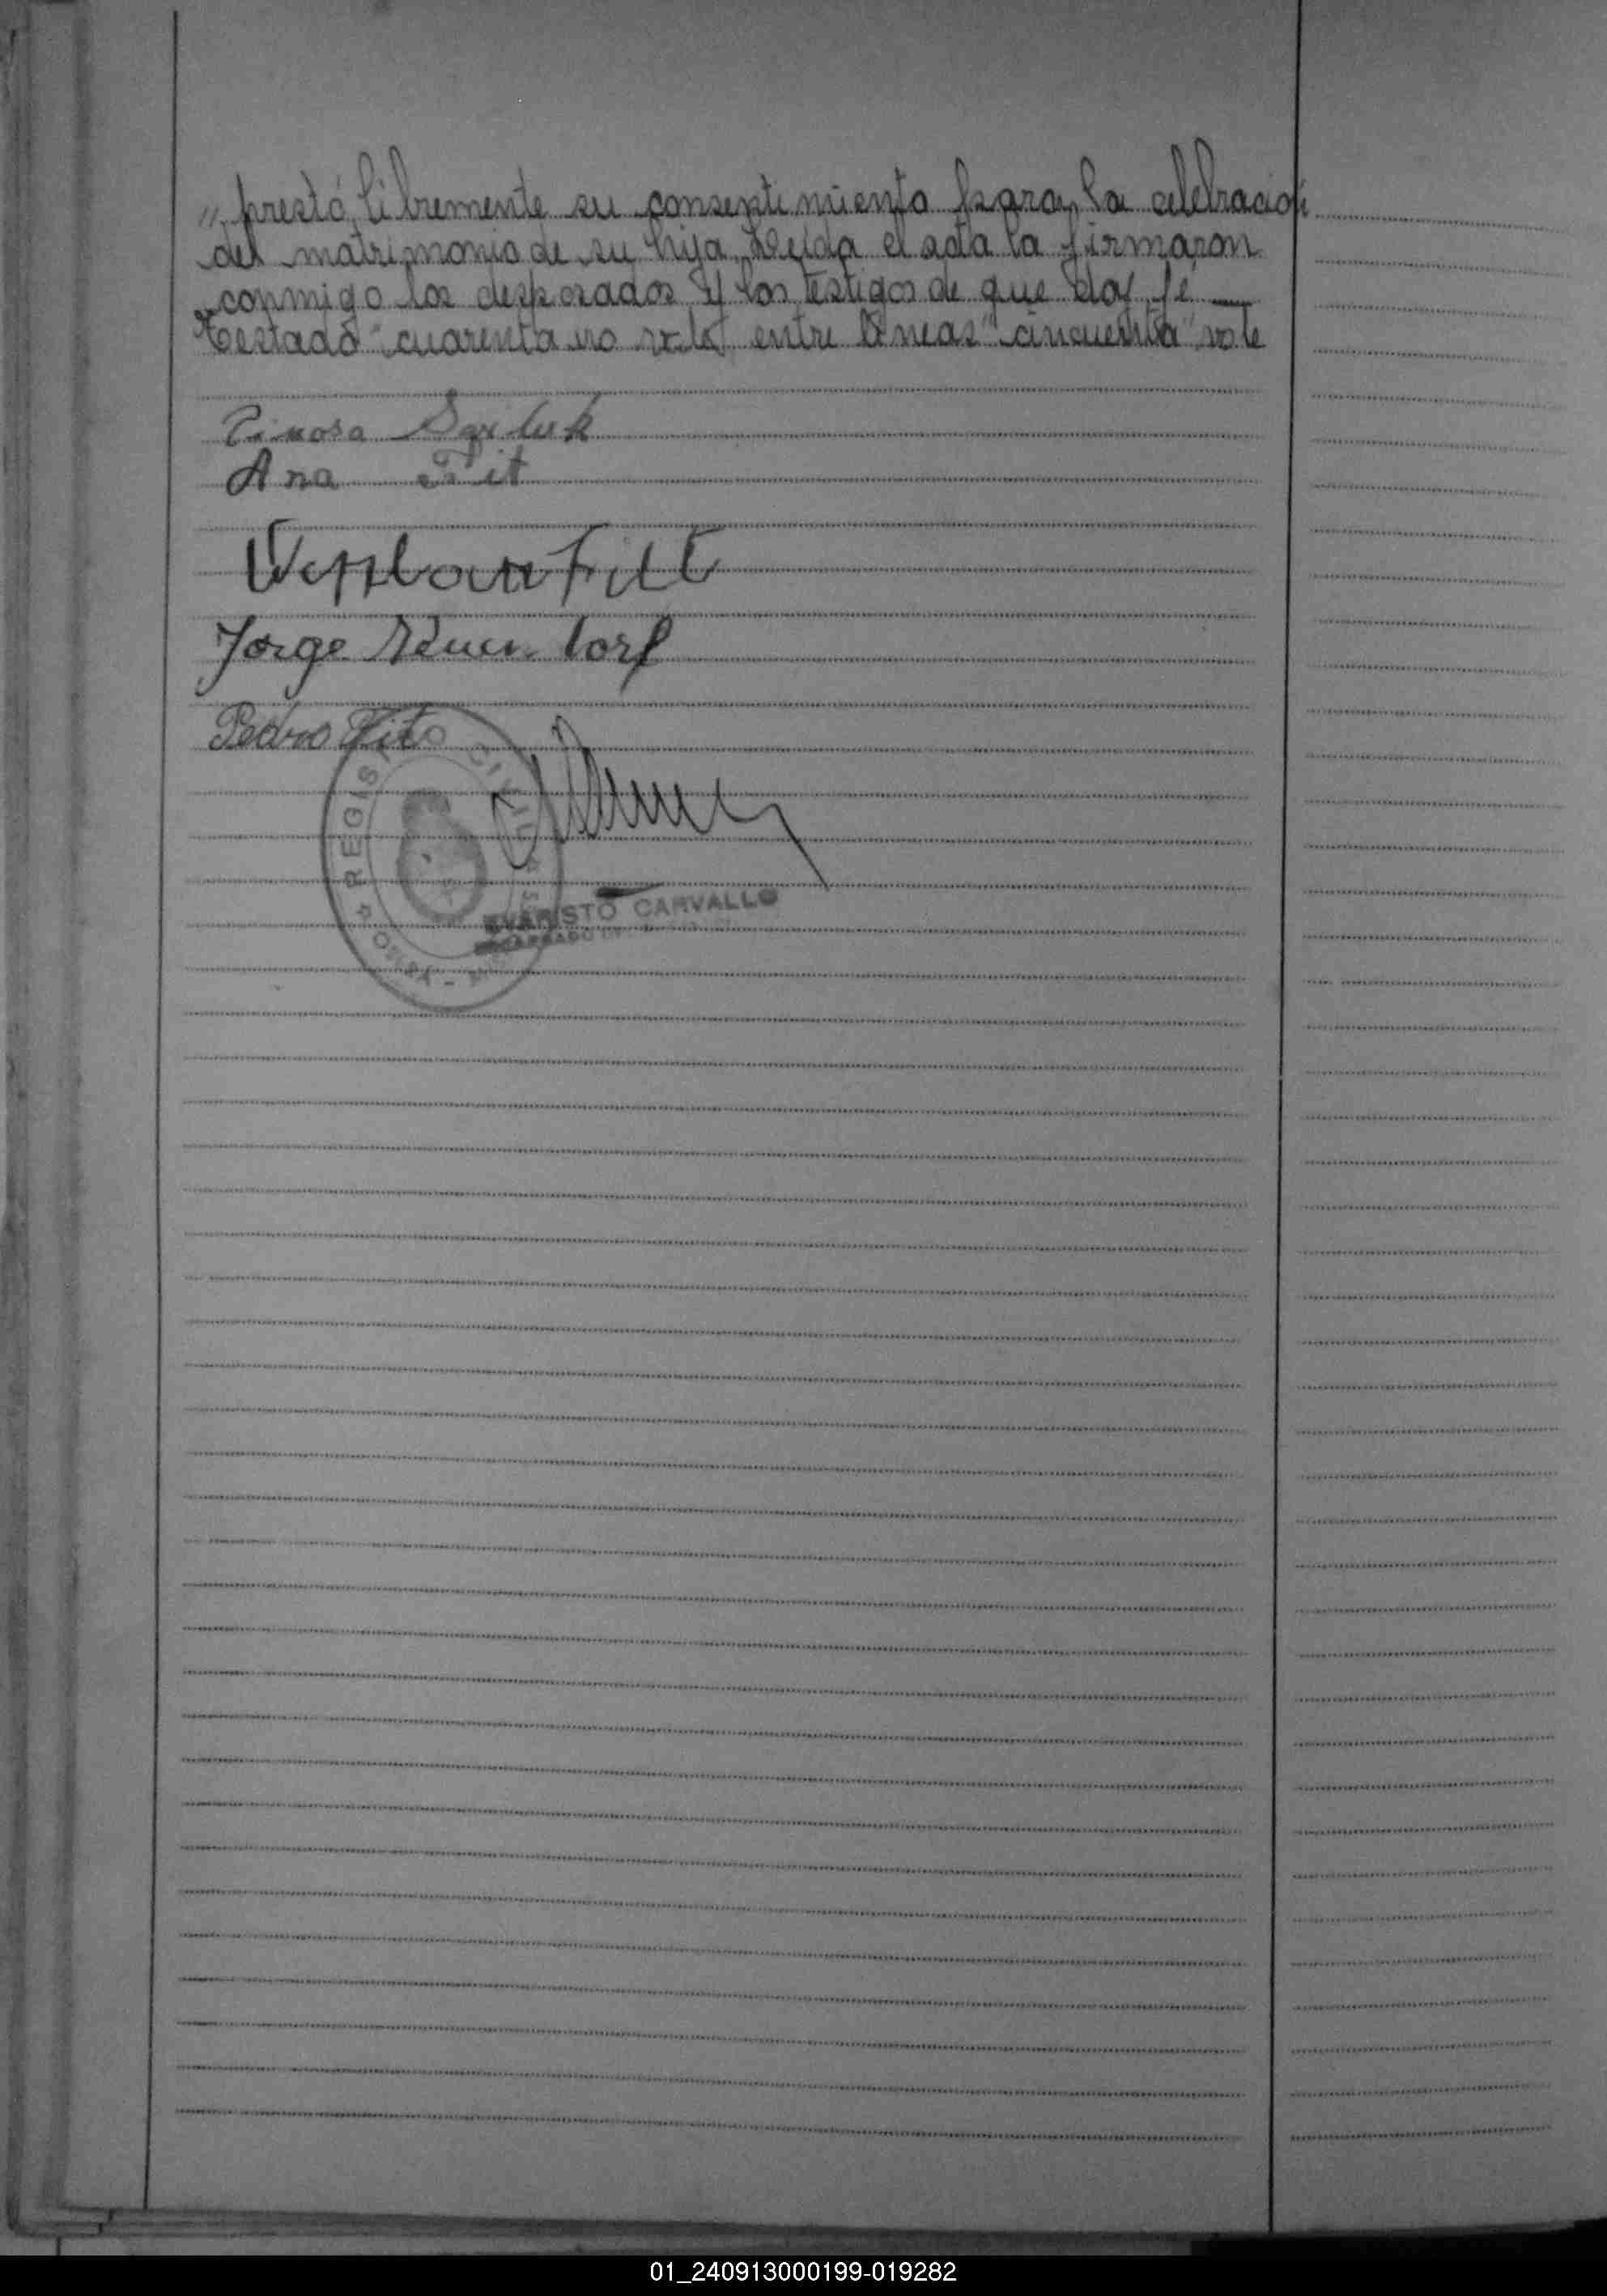 " prestó libremente su consentimiento para la celebración
del matrimonio de su hija. Leída el acta la firmaron
conmigo los desposados y los testigos de que doy fé —
Testado "cuarenta no vale entre líneas "cincuenta" vale
Ana Fit
Jorge
Pedro Fit
REGISTRO CIVIL
EVARISTO CARVALLO
ENCARGADO
01_240913000199-019282